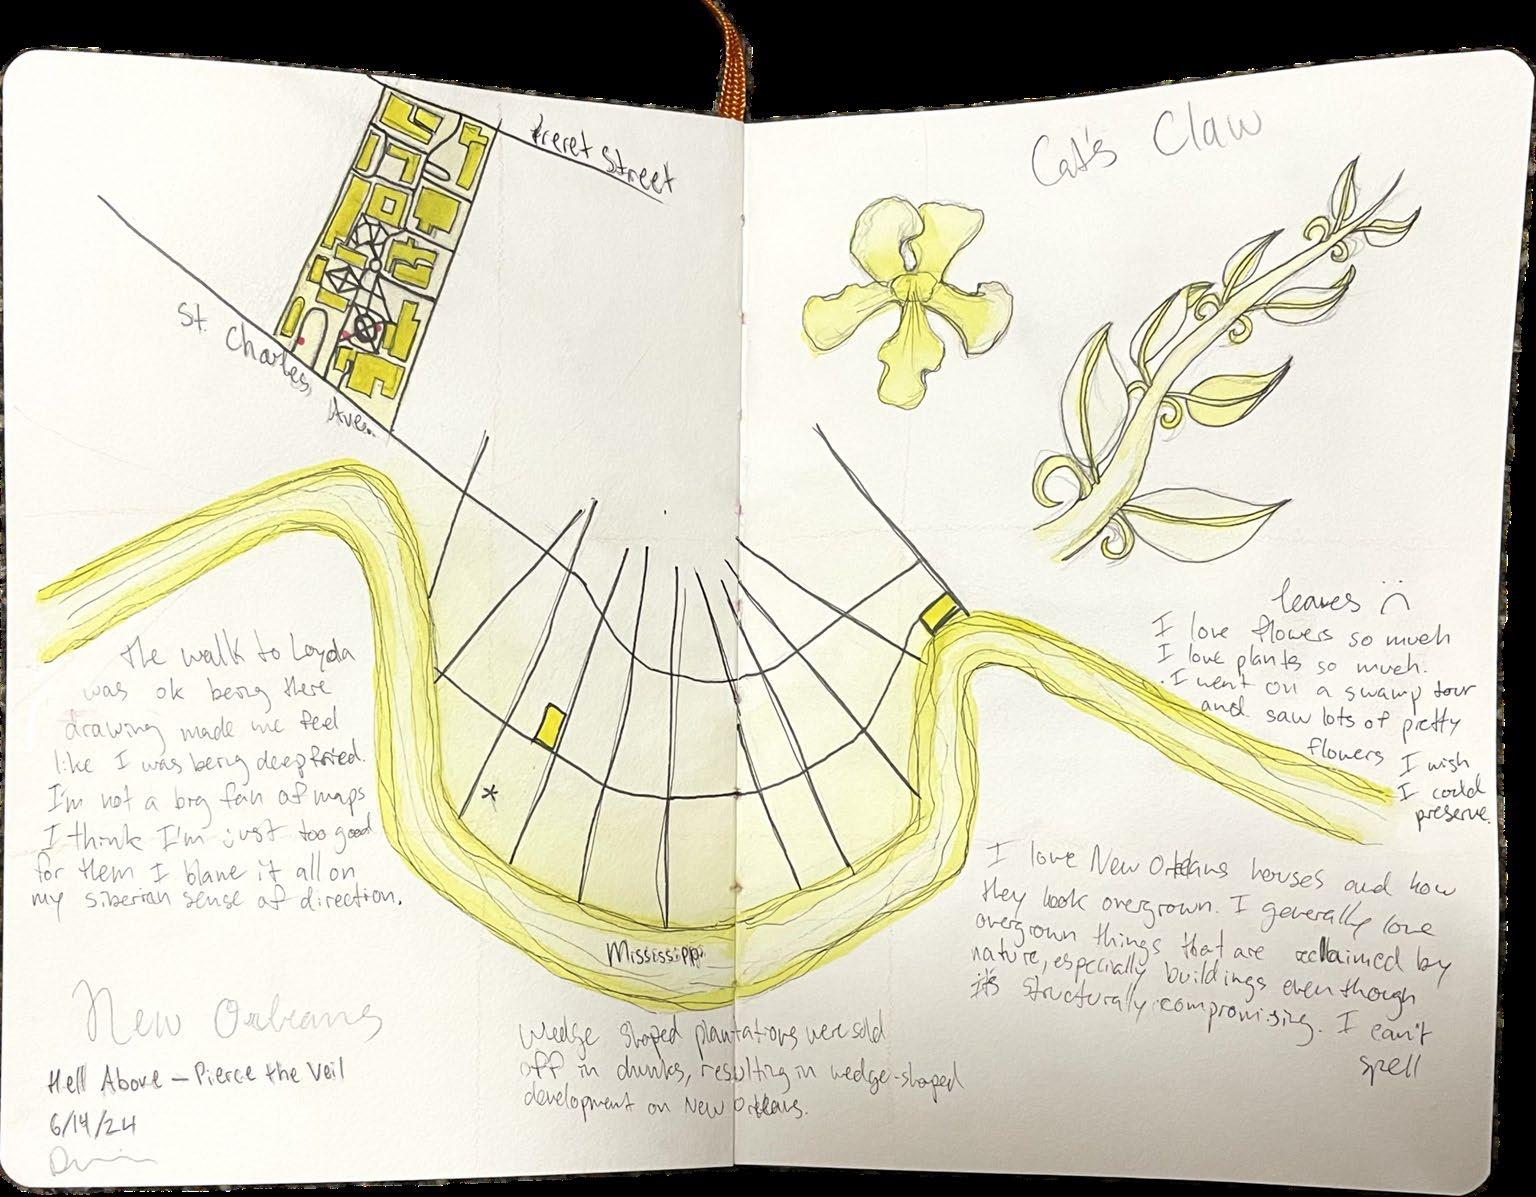 Freret Street
St. Charles Ave.
The walk to Loyola
was ok being there
drawing made me feel
like I was being deepfried.
I'm not a big fan of maps
I think I'm just too good
for them I blame it all on
my siberian sense of direction.
New Orleans
Hell Above – Pierce the Veil
6/14/24
*
Mississippi
Wedge shaped plantations were sold
off in chunks, resulting in wedge-shaped
development on New Orleans.
Cat's Claw
leaves :(
I love flowers so much
I love plants so much.
I went on a swamp tour
and saw lots of pretty
flowers I wish
I could
preserve.
I love New Orleans houses and how
they look overgrown. I generally love
overgrown things that are reclaimed by
nature, especially buildings even though
it's structurally compromising. I can't
spell